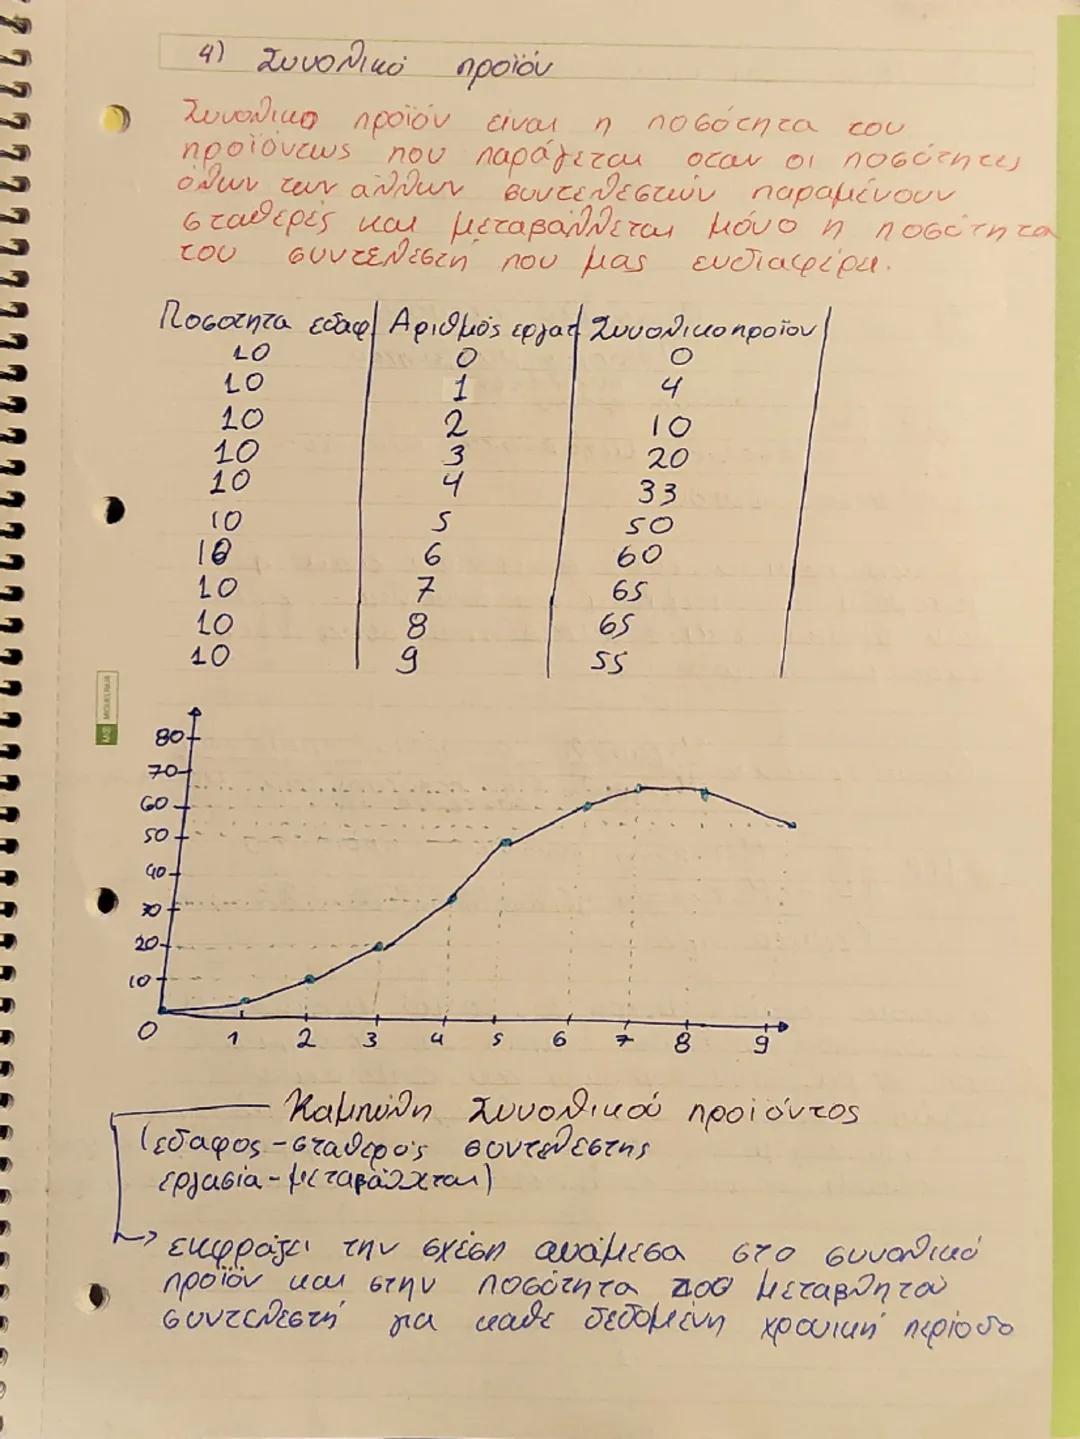 4) Συνολικό προϊόν
Συνολικο προϊόν είναι η ποσότητα του
προϊόντως που παράγεται οταν οι ποσότητες
όλων των άλλων συντελεστών παραμένουν
σταθερές και μεταβάλλεται μόνο η ποσότητα
του συντελεστή που μας ενδιαφέρει.
Ποσοτητα εδαφ Αριθμός εργατ Συνολικο προϊον
10 0 0
10 1 4
10 2 10
10 3 20
10 4 33
10 5 50
10 6 60
10 7 65
10 8 65
10 9 55
80
70
60
50
40
30
20
10
0 1 2 3 4 5 6 7 8 9
Καμπύλη Συνολικού προϊόντος
(εδαφος - σταθερός συντελεστης
εργασία - μεταβάλλεται)
εκφράζει την σχέση ανάμεσα στο συνολικό
προϊόν και στην ποσότητα του μεταβλητού
συντελεστή για κάθε δεδομένη χρονική περίοδο